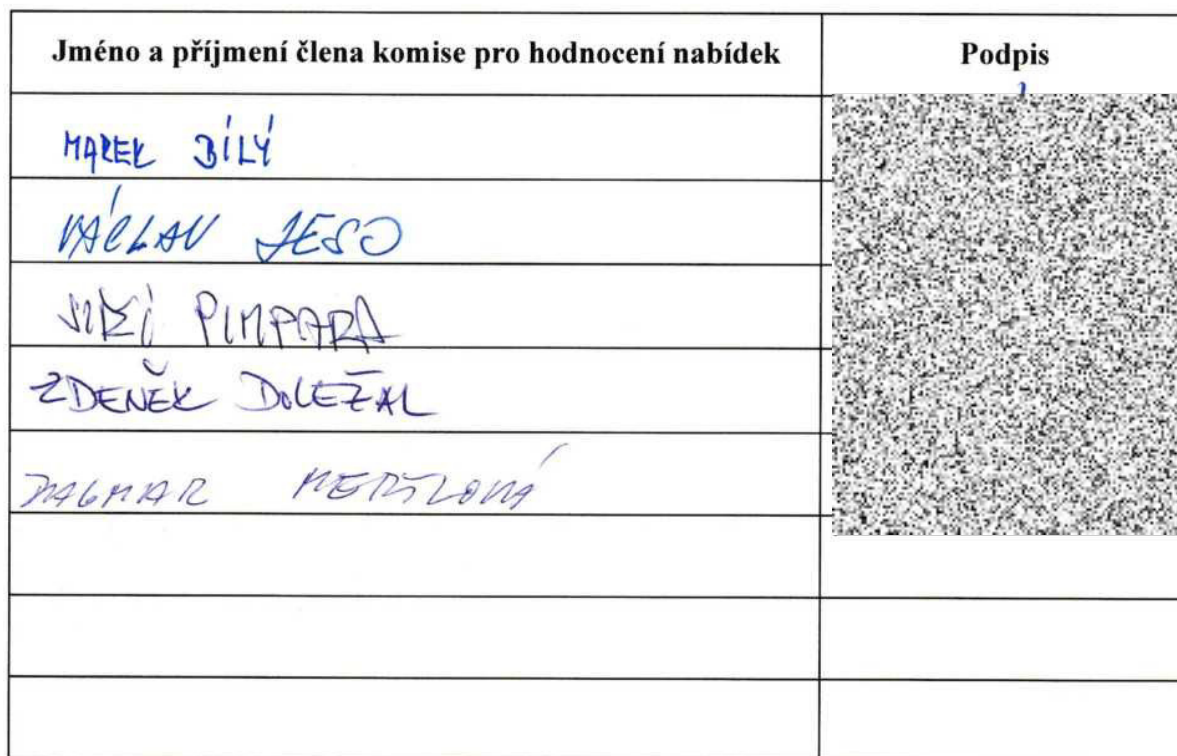 Jméno a příjmení člena komise pro hodnocení nabídek Podpis
MAREK BÍLÝ
VÁCLAV JESO
JIŘÍ PIMPARA
ZDENĚK DOLEŽAL
DAGMAR